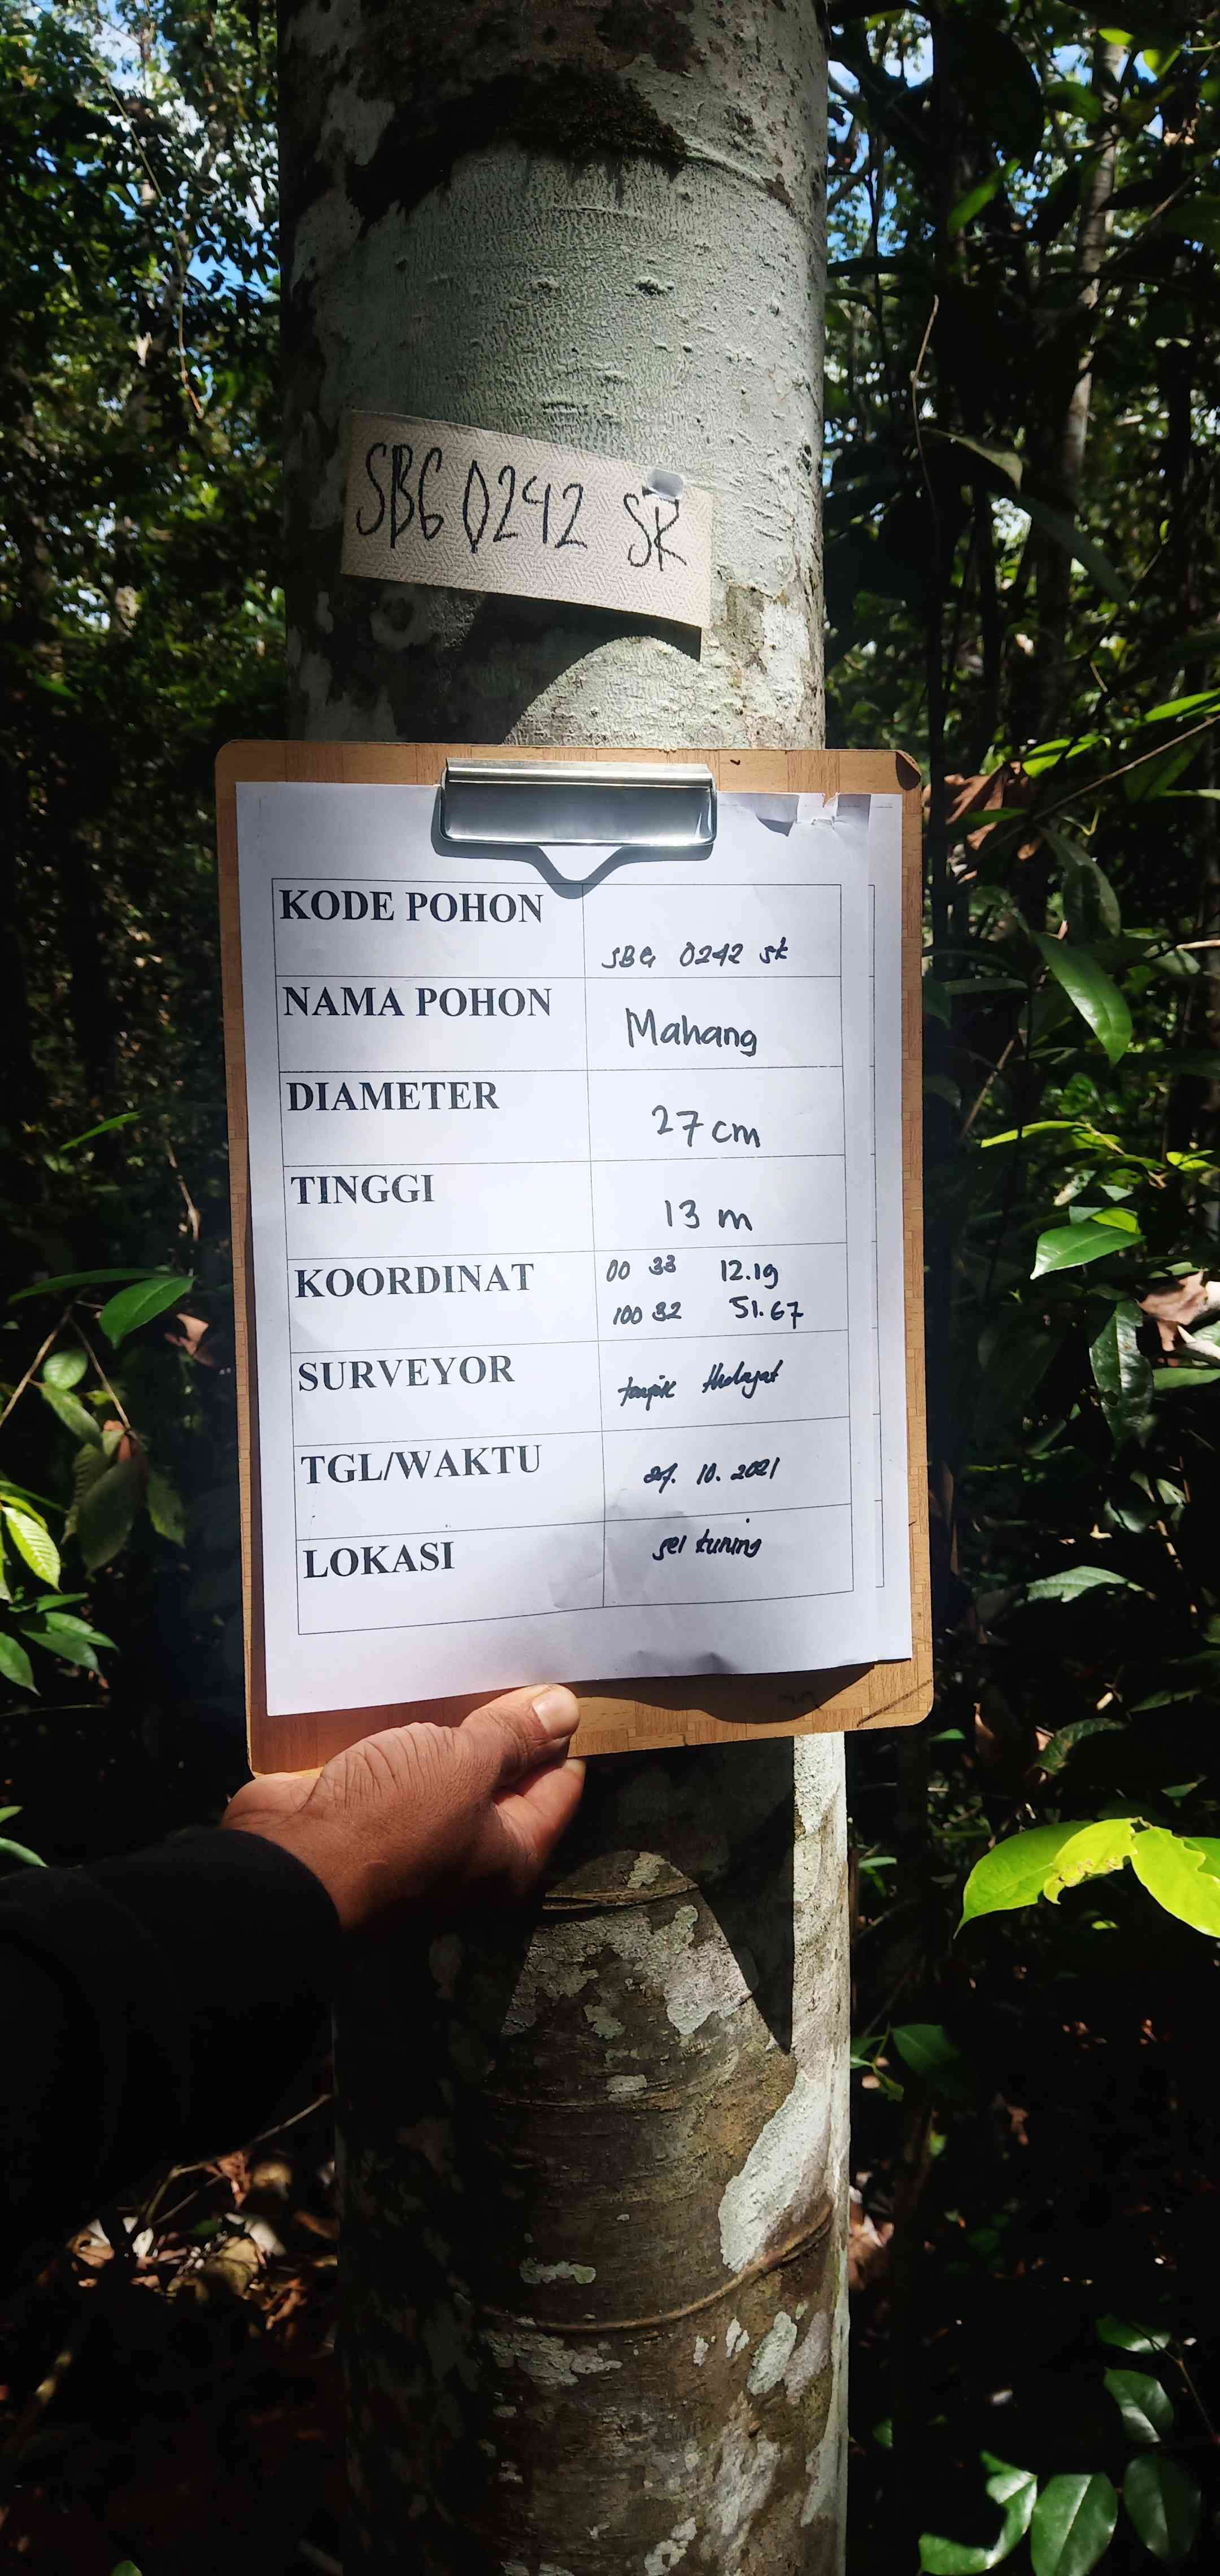 SBG 0242 SK
KODE POHON
SBG 0242 SK
NAMA POHON
Mahang
DIAMETER
27 cm
TINGGI
13 m
KOORDINAT
00 33 12.19
100 32 51.67
SURVEYOR
TGL/WAKTU
10. 2021
LOKASI
sei tuning